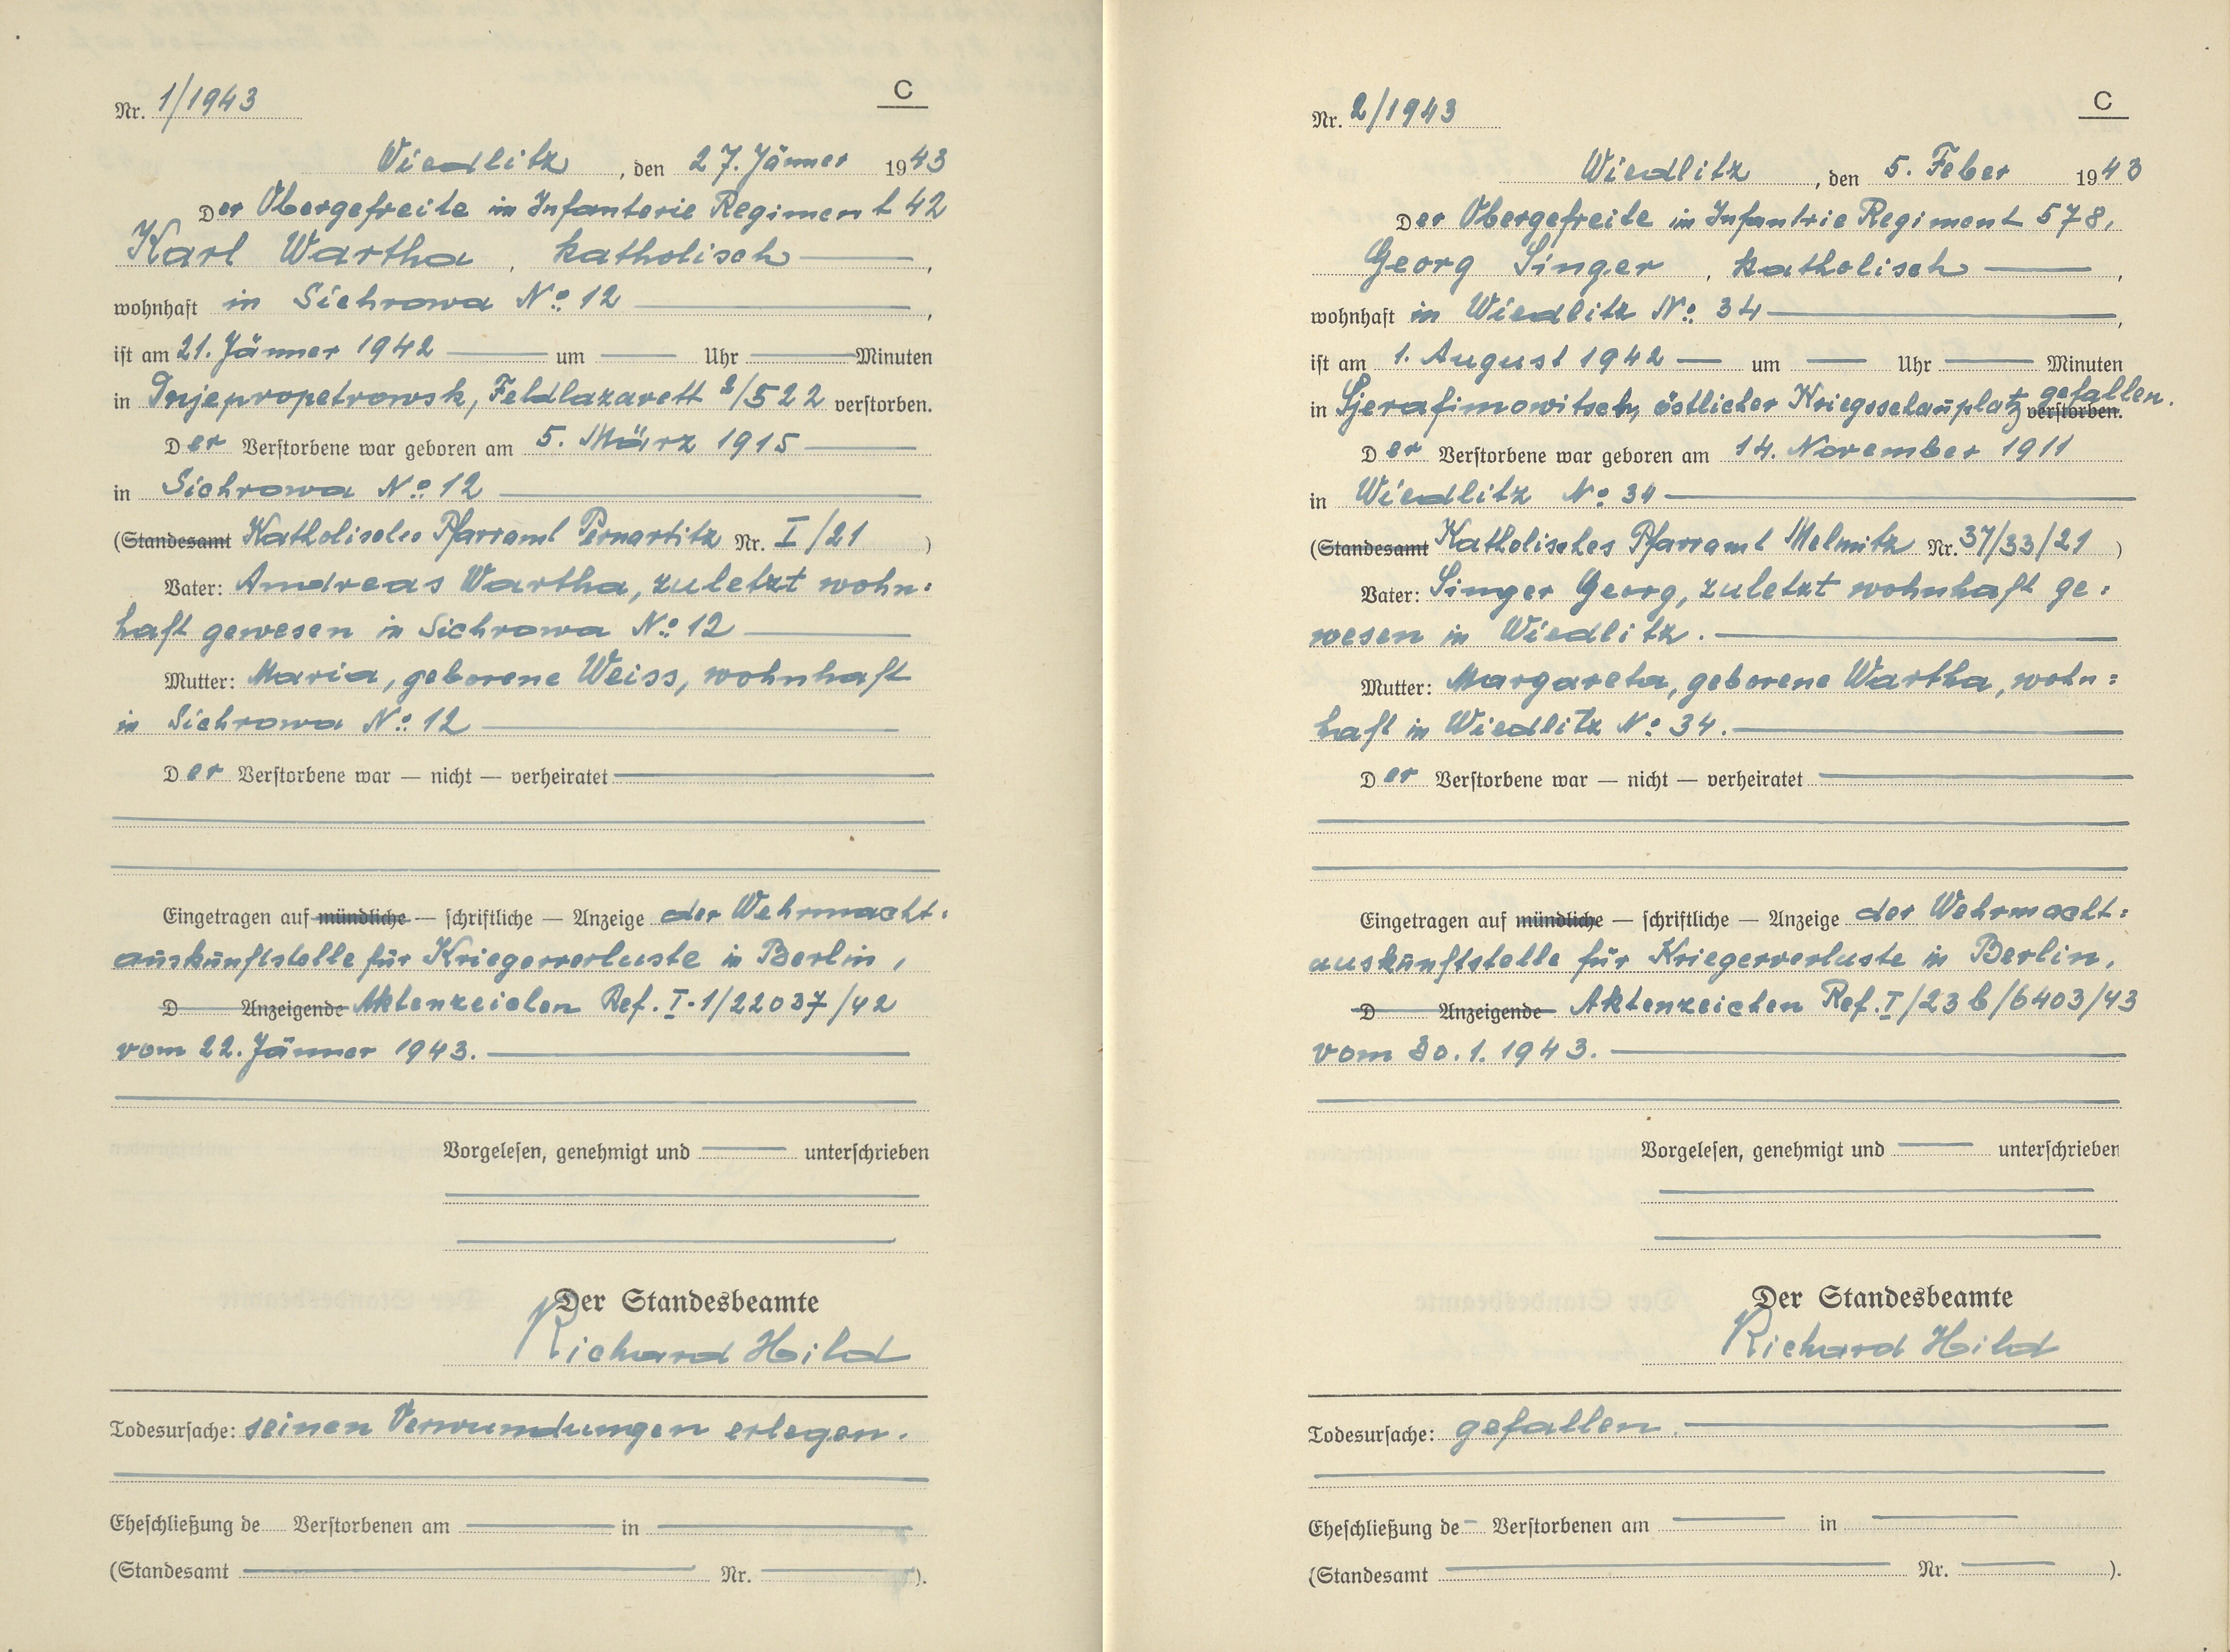 Nr. 1/1943
C
Wiedlitz, den 27. Jänner 1943
Der Obergefreite im Infanterie Regiment 42
Karl Wartha, katholisch,
wohnhaft in Sichrowa No: 12,
ist am 21. Jänner 1942 um Uhr Minuten
in Dnjepropetrowsk, Feldlazarett 2/522 verstorben.
Der Verstorbene war geboren am 5. März 1915
in Sichrowa No: 12
(Standesamt Katholisches Pfarramt Pernartitz Nr. I/21)
Vater: Andreas Wartha, zuletzt wohn:
haft gewesen in Sichrowa No: 12
Mutter: Maria, geborene Weiss, wohnhaft
in Sichrowa No: 12
Der Verstorbene war — nicht — verheiratet
Eingetragen auf mündliche — schriftliche — Anzeige der Wehrmacht:
auskunftstelle für Kriegerverluste in Berlin,
D Anzeigende Aktenzeichen Ref. I-1/22037/42
vom 22. Jänner 1943.
Vorgelesen, genehmigt und unterschrieben
Der Standesbeamte
Richard Hild
Todesursache: seinen Verwundungen erlegen.
Eheschließung de Verstorbenen am in
(Standesamt Nr. ).
Nr. 2/1943
C
Wiedlitz, den 5. Feber 1943
Der Obergefreite im Infantrie Regiment 578,
Georg Singer, katholisch,
wohnhaft in Wiedlitz No: 34,
ist am 1. August 1942 um Uhr Minuten
gefallen.
in Sjerafimowitsch, östlicher Kriegsschauplatz verstorben.
Der Verstorbene war geboren am 14. November 1911
in Wiedlitz No: 34
(Standesamt Katholisches Pfarramt Melmitz Nr. 37/33/21)
Vater: Singer Georg, zuletzt wohnhaft ge:
wesen in Wiedlitz.
Mutter: Margareta, geborene Wartha, wohn:
haft in Wiedlitz No: 34.
Der Verstorbene war — nicht — verheiratet
Eingetragen auf mündliche — schriftliche — Anzeige der Wehrmacht:
auskunftstelle für Kriegerverluste in Berlin,
D Anzeigende Aktenzeichen Ref. I/23b/6403/43
vom 30.1.1943.
Vorgelesen, genehmigt und unterschrieben
Der Standesbeamte
Richard Hild
Todesursache: gefallen.
Eheschließung de Verstorbenen am in
(Standesamt Nr. ).